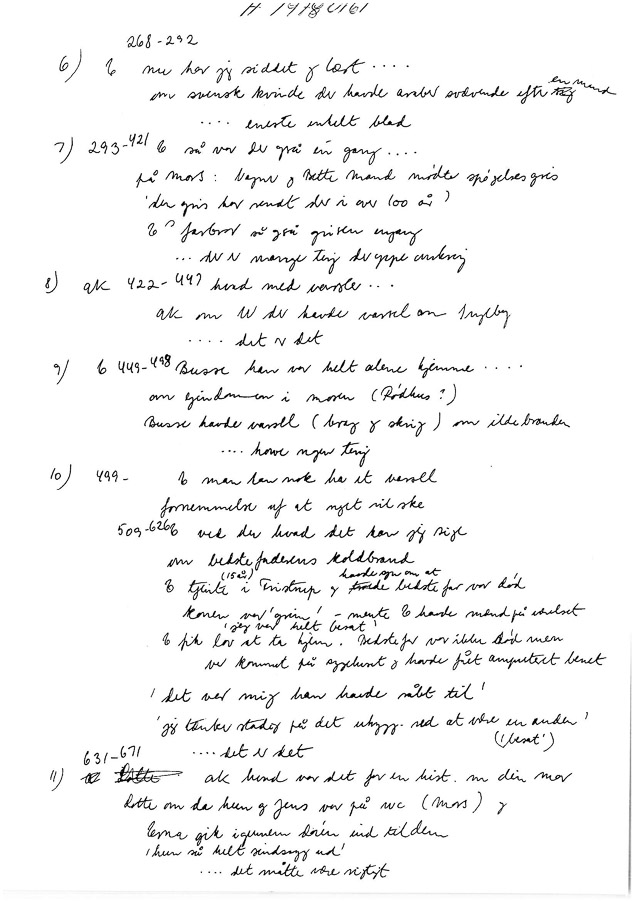 268-292
6) E nu har jeg siddet og læst ....
om svensk kvinde der havde araber svævende efter en mand
.... eneste enkelt blad
7) 293-421 E så var der også én gang ....
på Mors: Vagner og Dette Mand mødte spøgelsesgris
'den gris har rendt der i over 100 år'
E's farbror så også grisen engang
... der er mange ting der omkring
8) AK 422-447 hvad med varsler ...
AK om der havde varsel om
.... det er det
9) E 449-498 Busse han var helt alene hjemme ....
om ejendommen i mosen (Rødhus?)
Busse havde varsel (brag og skrig) om ildebranden
.... ting
10) 499- E man kan nok ha et varsel
fornemmelse af at noget vil ske
509-626 E ved du hvad det kan jeg sige
om bedstefaderens koldbrand
E tjente (15 år) i Tristrup og havde syn om at bedstefar var død
konen var 'grim' - mente E havde mænd på værelset
'jeg var helt besat'
E fik lov at ta hjem. Bedstefar var ikke død men
var kommet på sygehuset og havde fået amputeret benet
'det var mig han havde råbt til'
'jeg tænker stadig på det uhygg. ved at være en anden'
('besat')
.... det er det
631-671
11) AK hvad var det for en hist. m din mor
Dotte om da hun og Jens var på wc (Mors) og
Erna gik igennem døren ind til dem
'hun så helt sindssyg ud'
.... det måtte være rigtigt